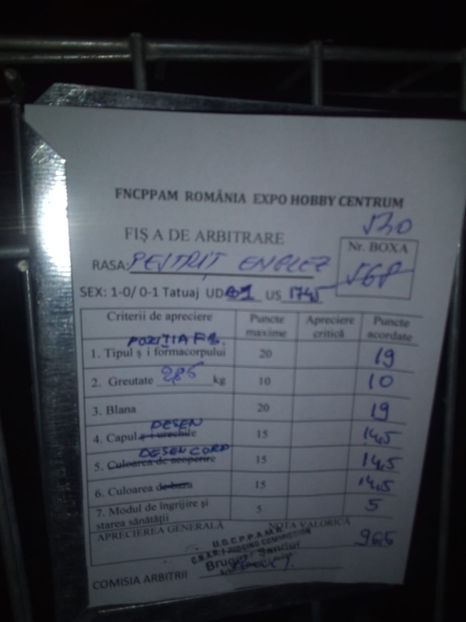 FNCPPAM ROMÂNIA EXPO HOBBY CENTRUM
530
FIȘA DE ARBITRARE
Nr. BOXA
568
RASA: PESTRIȚ ENGLEZ
SEX: 1-0/ 0-1 Tatuaj UD US 1745
Criterii de apreciere Puncte maxime Apreciere critică Puncte acordate
POZIȚIA
1. Tipul și formacorpului 20 19
2. Greutate 2,85 kg 10 10
3. Blana 20 19
DESEN
4. Capul și urechile 15 14,5
DESEN CORP
5. Culoarea de acoperire 15 14,5
6. Culoarea de baza 15 14,5
7. Modul de îngrijire și starea sănătății 5 5
APRECIEREA GENERALĂ NOTA VALORICĂ
U.S.C.P.P.A.M.P.
COMMISSION
COMISIA ARBITRII